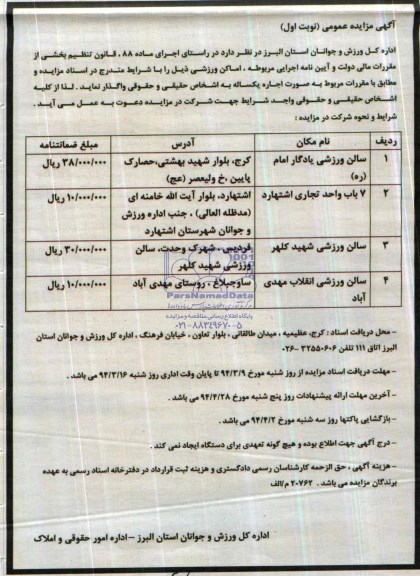 آگهی مزایده عمومی (نوبت اول)
اداره کل ورزش و جوانان استان البرز در نظر دارد در راستای اجرای ماده ۸۸ ، قانون تنظیم بخشی از
مقررات مالی دولت و آیین نامه اجرایی مربوطه ، اماکن ورزشی ذیل را با شرایط مندرج در اسناد مزایده و
مطابق با مقررات مربوط به صورت اجاره یکساله به اشخاص حقیقی و حقوقی واگذار نماید . لذا از کلیه
اشخاص حقیقی و حقوقی واجد شرایط جهت شرکت در مزایده دعوت به عمل می آید .
شرایط و نحوه شرکت در مزایده :
ردیف نام مکان آدرس مبلغ ضمانتنامه
۱ سالن ورزشی یادگار امام کرج، بلوار شهید بهشتی،حصارک ۳۸/۰۰۰/۰۰۰ ریال
(ره) پایین ،خ ولیعصر (عج)
۲ ۷ باب واحد تجاری اشتهارد اشتهارد، بلوار آیت الله خامنه ای ۱۰/۰۰۰/۰۰۰ ریال
(مدظله العالی) ، جنب اداره ورزش
و جوانان شهرستان اشتهارد
۳ سالن ورزشی شهید کلهر فردیس ، شهرک وحدت، سالن ۳۰/۰۰۰/۰۰۰ ریال
ورزشی شهید کلهر
۴ سالن ورزشی انقلاب مهدی ساوجبلاغ ، روستای مهدی آباد ۱۰/۰۰۰/۰۰۰ ریال
آباد
ParsNamadData
پایگاه اطلاع رسانی مناقصه و مزایده
۰۲۱-۸۸۳۴۹۶۷۰-۵
- محل دریافت اسناد : کرج، عظیمیه ، میدان طالقانی ، بلوار تعاون ، خیابان فرهنگ ، اداره کل ورزش و جوانان استان
البرز اتاق ۱۱۱ تلفن ۳۲۵۵۰۶۰۶ -۰۲۶
- مهلت دریافت اسناد مزایده از روز شنبه مورخ ۹۴/۳/۹ تا پایان وقت اداری روز شنبه ۹۴/۳/۱۶ می باشد .
- آخرین مهلت ارائه پیشنهادات روز پنج شنبه مورخ ۹۴/۴/۲۸ می باشد .
- بازگشایی پاکتها روز سه شنبه مورخ ۹۴/۴/۲ می باشد .
- درج آگهی جهت اطلاع بوده و هیچ گونه تعهدی برای دستگاه ایجاد نمی کند .
- هزینه آگهی ، حق الزحمه کارشناسان رسمی دادگستری و هزینه ثبت قرارداد در دفترخانه اسناد رسمی به عهده
برندگان مزایده می باشد . ۲۰۷۶۲ م/الف
اداره کل ورزش و جوانان استان البرز -اداره امور حقوقی و املاک